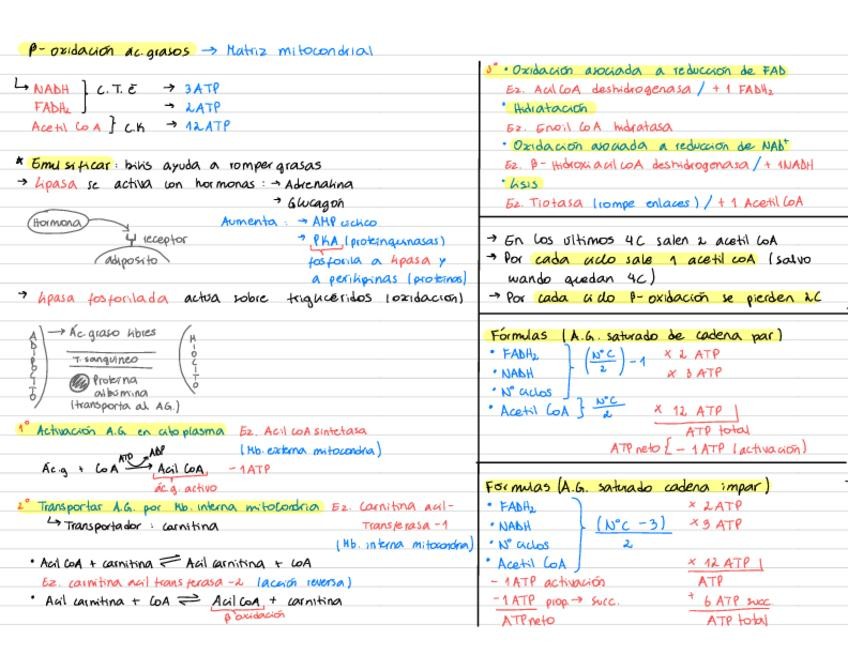 β-oxidación ac.grasos → Matriz mitocondrial
↳ NADH } C.T.E → 3ATP
FADH₂ } → 2ATP
Acetil CoA } C.K → 12ATP
* Emulsificar: bilis ayuda a romper grasas
→ lipasa se activa con hormonas: → Adrenalina
→ Glucagon
Hormona
receptor
adiposito
Aumenta: → AMP ciclico
→ PKA (proteinquinasas)
fosforila a lipasa y
a perilipinas (proteinas)
→ lipasa fosforilada actua sobre triglicéridos (oxidación)
ADIPOCITO
→ Ác graso libres
T. sanguineo
Proteina
albumina
(transporta al AG.)
MIOCITO
1° Activación A.G. en citoplasma Ez. Acil CoA sintetasa
(Mb. externa mitocondria)
ATP ADP
Ác.g + CoA → Acil CoA - 1ATP
ác g. activo
2° Transportar A.G. por Mb. interna mitocondria Ez. Carnitina acil-
↳ Transportador: carnitina Transferasa-1
(Mb. interna mitocondria)
• Acil CoA + carnitina ⇌ Acil carnitina + CoA
Ez. carnitina acil transferasa-2 (acción reversa)
• Acil carnitina + CoA ⇌ Acil CoA + carnitina
β oxidación
3° • Oxidación asociada a reducción de FAD
Ez. Acil CoA deshidrogenasa / + 1 FADH₂
• Hidratación
Ez. Enoil CoA hidratasa
• Oxidación asociada a reducción de NAD⁺
Ez. β-Hidroxi acil CoA deshidrogenasa / + 1NADH
• Lisis
Ez. Tiotasa (rompe enlaces) / + 1 Acetil CoA
→ En los ultimos 4C salen 2 acetil coA
→ Por cada ciclo sale 1 acetil coA (salvo
cuando quedan 4C)
→ Por cada ciclo β-oxidación se pierden 2C
Fórmulas (A.G. saturado de cadena par)
• FADH₂ x 2 ATP
• NADH } (N°C/2) - 1 x 3 ATP
• N° ciclos
• Acetil CoA } N°C/2 x 12 ATP
ATP total
ATP neto { - 1 ATP (activación)
Formulas (A.G. saturado cadena impar)
• FADH₂ x 2ATP
• NADH } (N°C - 3)/2 x 3 ATP
• N° ciclos
• Acetil CoA x 12 ATP
- 1 ATP activación ATP
- 1 ATP prop → succ. + 6 ATP succ
ATP neto ATP total